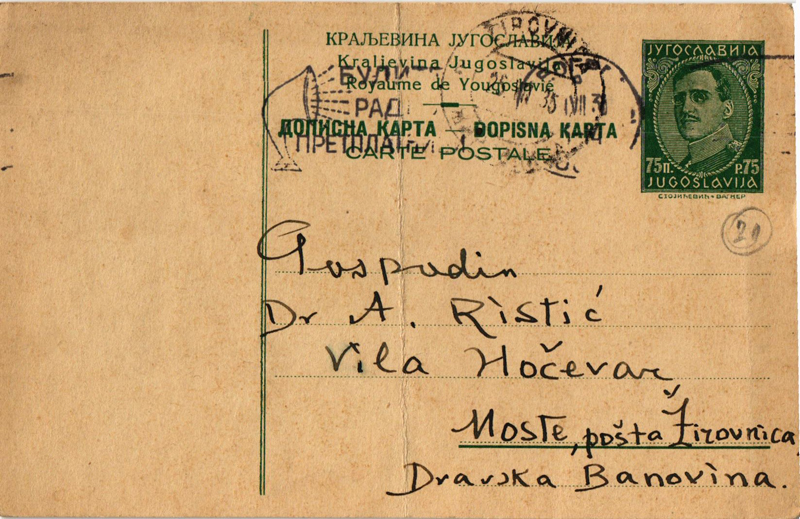 КРАЉЕВИНА ЈУГОСЛАВИЈА
Kraljevina Jugoslavija
Royaume de Yougoslavie
ДОПИСНА КАРТА — DOPISNA KARTA
CARTE POSTALE
ЈУГОСЛАВИЈА
75П. P.75
JUGOSLAVIJA
СТОЈИЋЕВИЋ · ВАГНЕР
21
Gospodin
Dr A. Ristić
Vila Hočevar
Moste, pošta Žirovnica
Dravska Banovina.